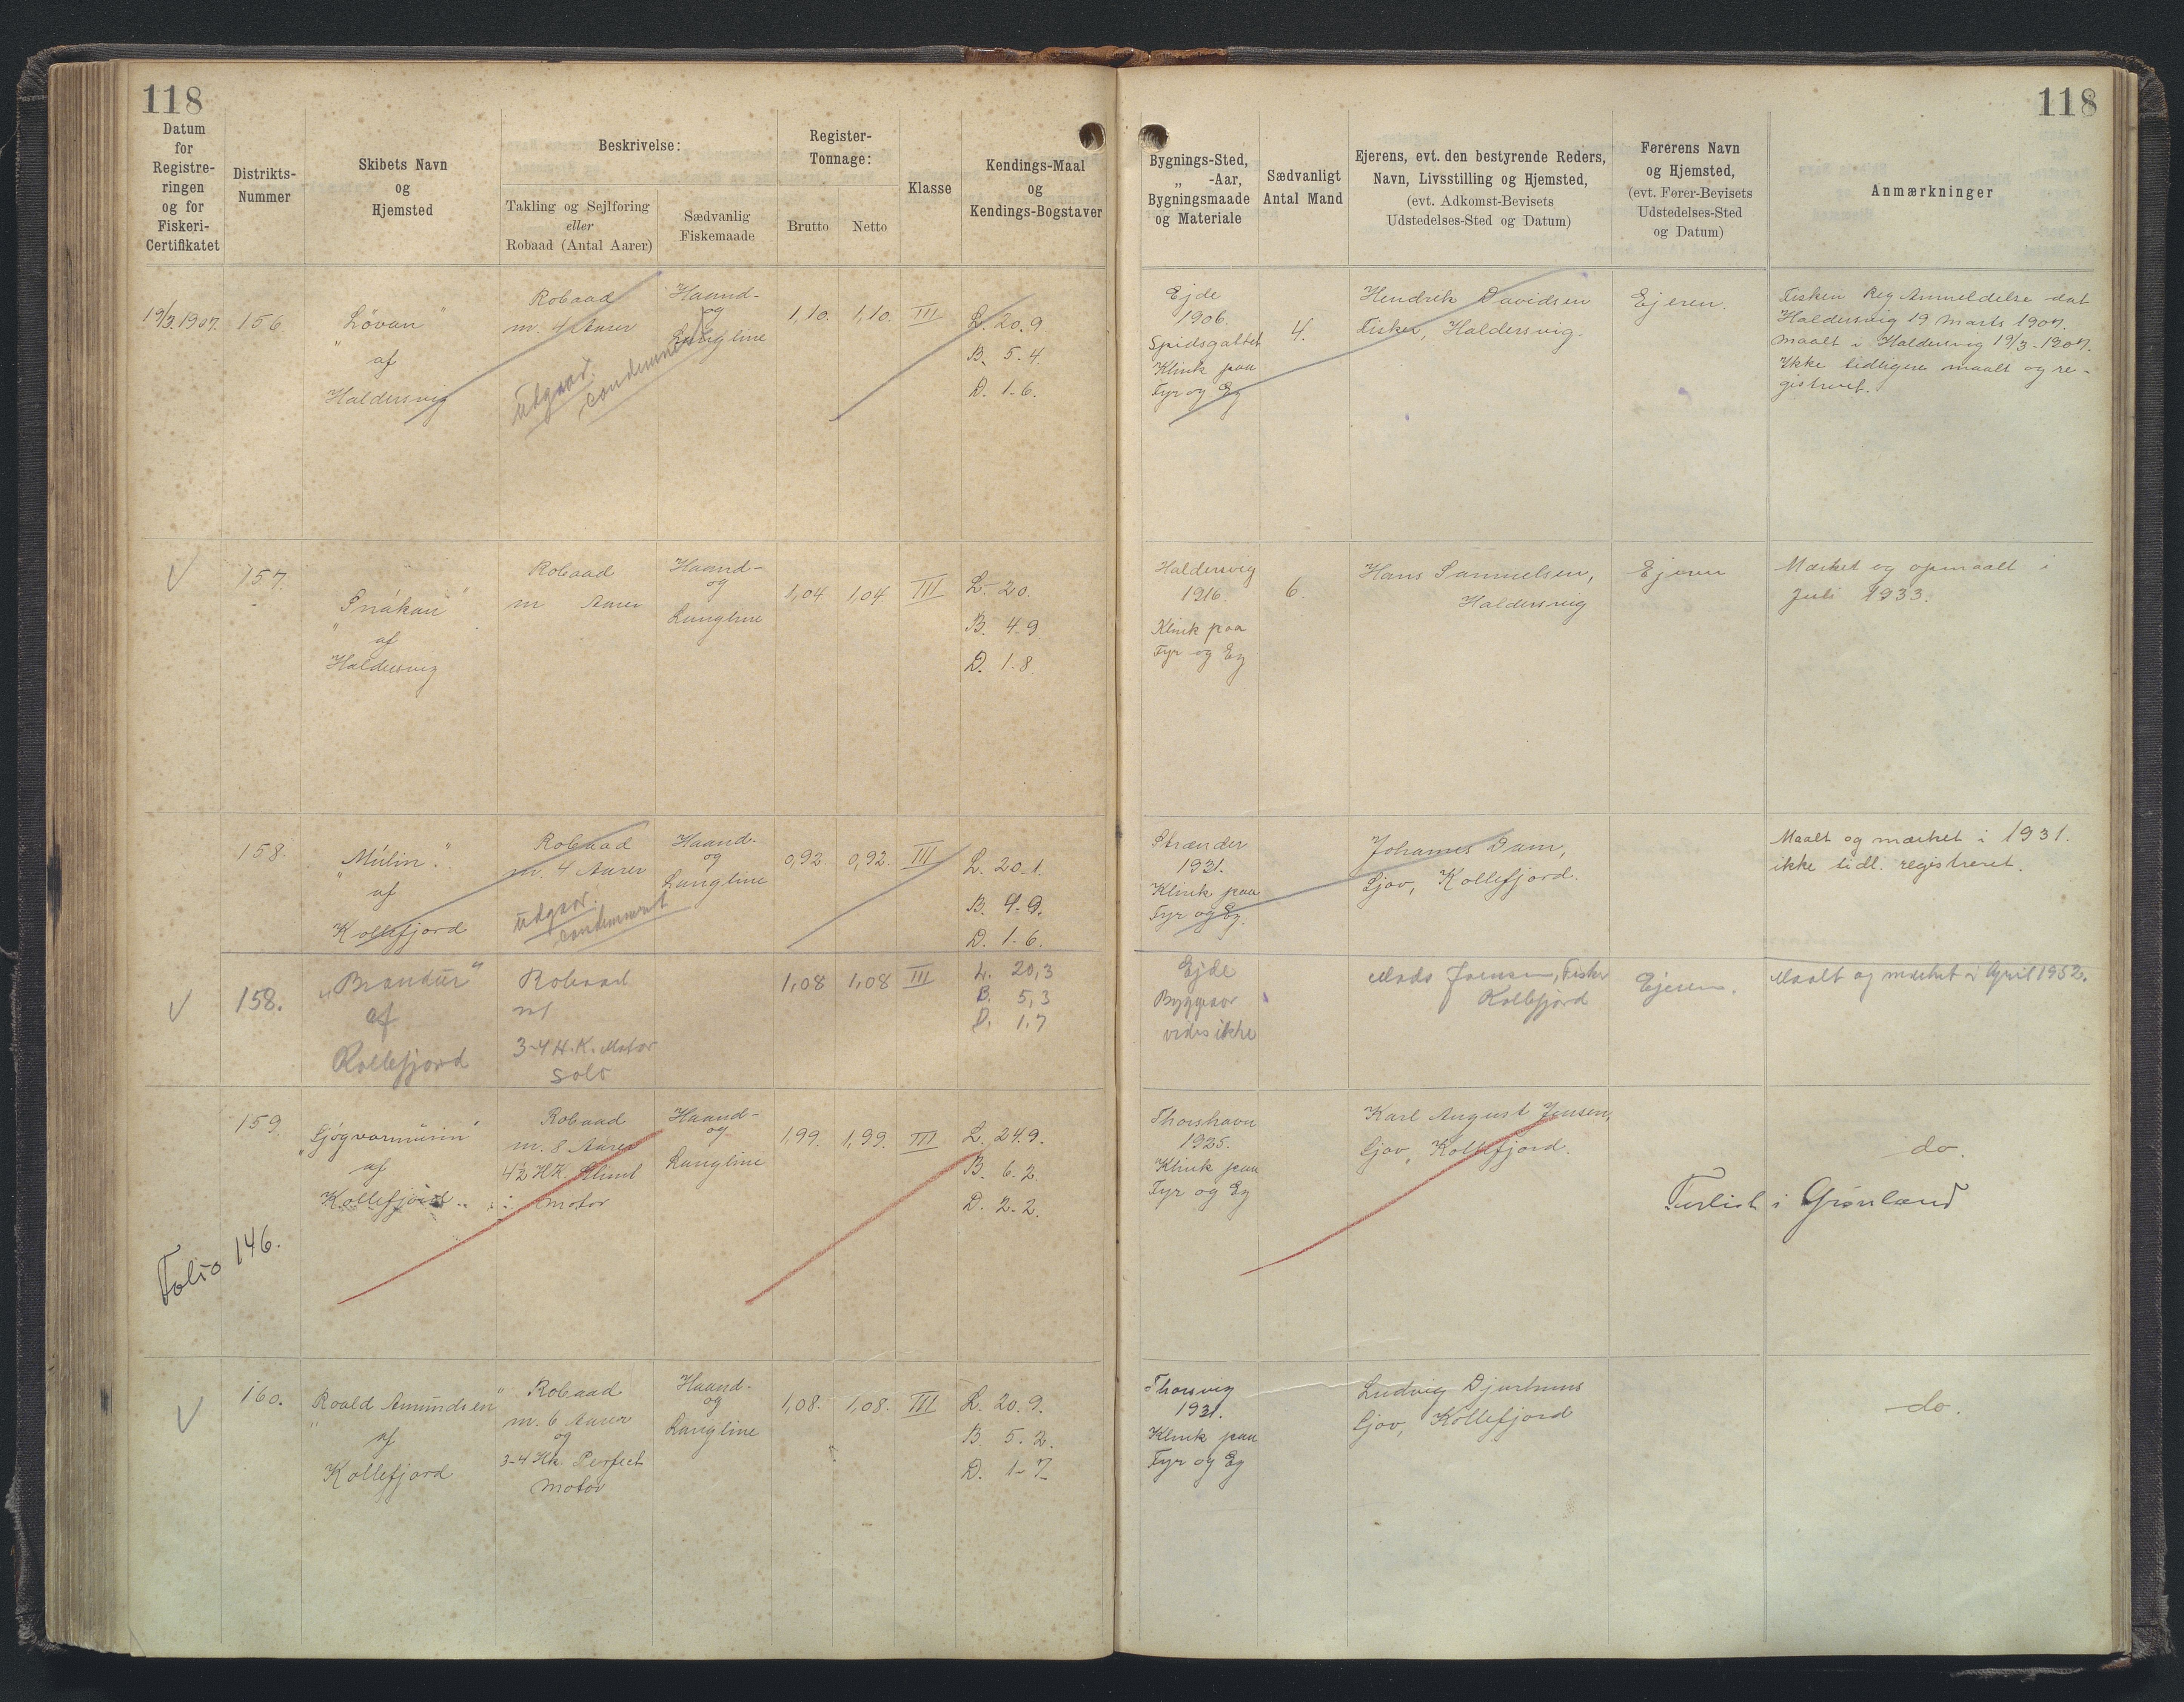 118
118
Datum
for
Registre-
ringen
og for
Fiskeri-
Certifikatet
Distrikts-
Nummer
Skibets Navn
og
Hjemsted
Beskrivelse:
Takling og Sejlføring
eller
Robaad (Antal Aarer)
Sædvanlig
Fiskemaade
Register-
Tonnage:
Brutto
Netto
Klasse
Kendings-Maal
og
Kendings-Bogstaver
Bygnings-Sted,
„ -Aar,
Bygningsmaade
og Materiale
Sædvanligt
Antal Mand
Ejerens, evt. den bestyrende Reders,
Navn, Livsstilling og Hjemsted,
(evt. Adkomst-Bevisets
Udstedelses-Sted og Datum)
Førerens Navn
og Hjemsted,
(evt. Fører-Bevisets
Udstedelses-Sted
og Datum)
Anmærkninger
19/3.1907.
156.
"Lövan"
af
Haldersvig
Robaad
m. 4 Aarer
Udgaar.
condemneret
Haand-
og
Langline
1,10.
1,10.
III
L. 20.9
B. 5.4
D. 1.6.
Ejde
1906.
Spidsgattet
Klink paa
Fyr og Eg
4.
Hendrik Davidsen
Fisker, Haldersvig.
Ejeren.
Fiskeri Reg Anmeldelse dat
Haldersvig 19 Marts 1907.
Maalt i Haldersvig 19/3-1907.
Ikke tidligere maalt og re-
gistreret.
157.
"Snákan"
af
Haldersvig
Robaad
m Aarer
Haand-
og
Langline
1,04
1,04
III
L. 20.
B. 4.9
D. 1.8.
Haldersvig
1916.
Klink paa
Fyr og Eg
6.
Hans Samuelsen,
Haldersvig
Ejeren
Mærket og opmaalt i
Juli 1933.
158.
"Múlin".
af
Kollefjord
Robaad
m. 4 Aarer
Udgaar.
condemneret
Haand-
og
Langline
0,92
0,92.
III
L. 20.1.
B. 4.9.
D. 1.6.
Strænder
1931.
Klink paa
Fyr og Eg.
Johannes Dam,
Gjov, Kollefjord.
Maalt og mærket i 1931.
ikke tidl. registreret.
158.
"Brandur"
af
Kollefjord
Robaad
m/
3-4 H.K. Motor
Solo
1,08
1,08
III
L. 20,3
B. 5,3
D. 1.7
Ejde
Byggeaar
vides ikke
Mads Joensen, Fisker
Kollefjord
Ejeren.
Maalt og mærket i April 1952.
159.
"Gjógvarmúrin"
af
Kollefjord
Robaad
m. 8 Aarer
4½ HK.
motor
Haand-
og
Langline
1,99.
1,99.
III
L. 24.9.
B. 6.2.
D. 2.2.
Thorshavn
1925.
Klink paa
Fyr og Eg
Karl August Jensen,
Gjov, Kollefjord.
do.
Forlist i Grønland
Folio 146.
160.
"Roald Amundsen"
af
Kollefjord
Robaad
m. 6 Aarer
og
3-4 Hk Perfect
motor
Haand-
og
Langline
1,08.
1,08.
III
L. 20.9.
B. 5.2.
D. 1-7
Thorsvig
1931.
Klink paa
Fyr og Eg
Ludvig Djurhuus
Gjov, Kollefjord
do.